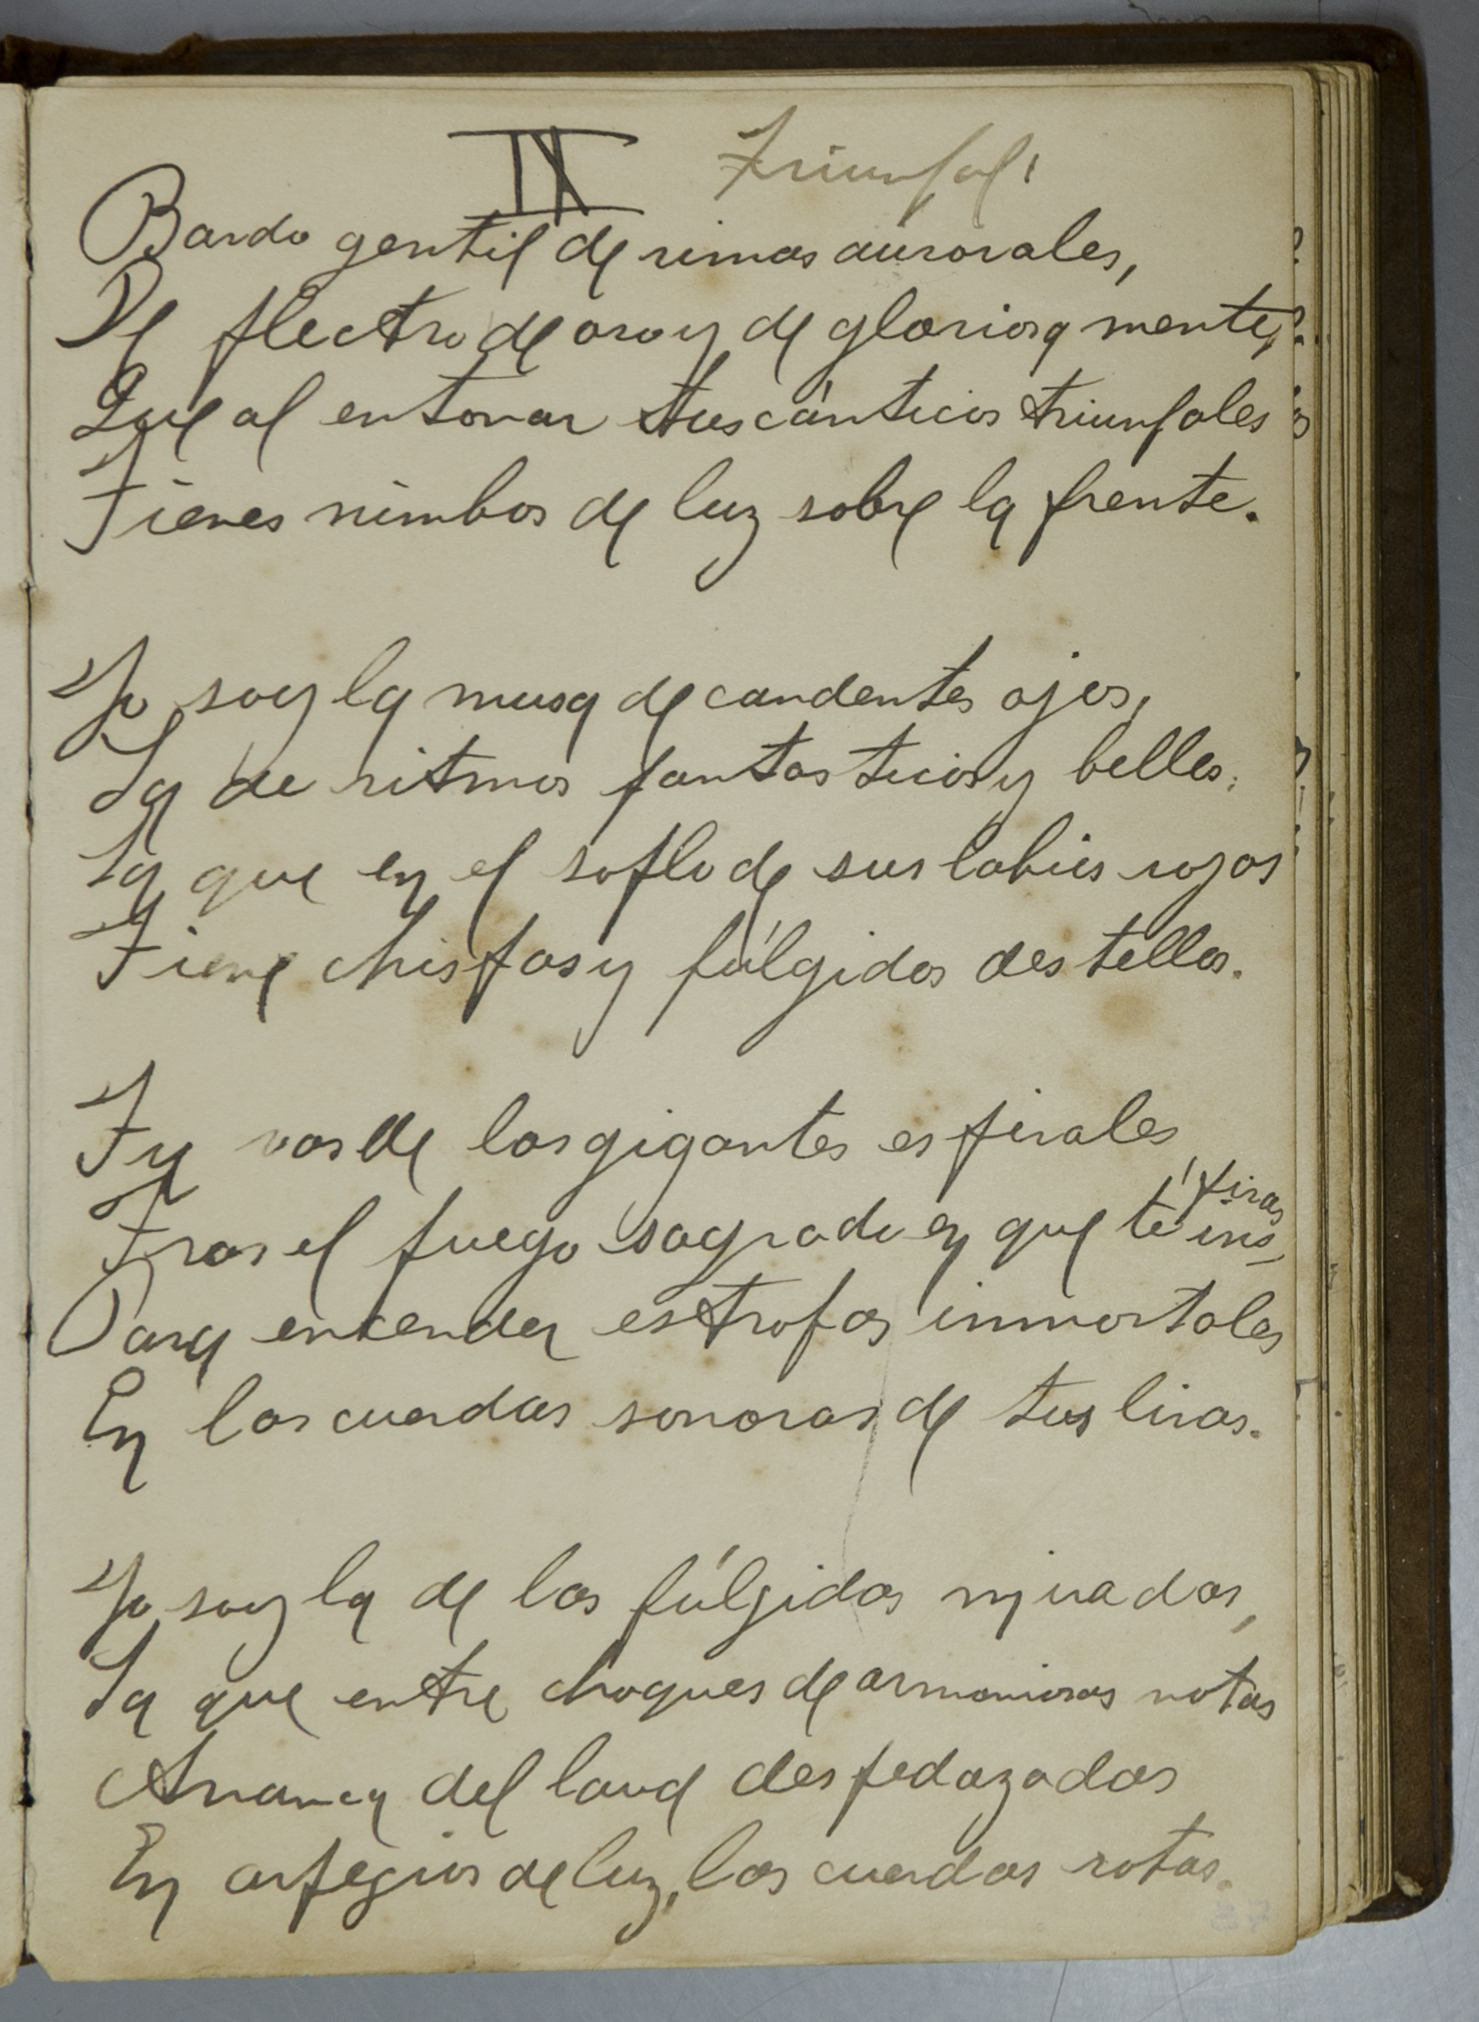 IX Triunfal!
Bardo gentil de rimas aurorales,
De plectro de oro y de gloriosa mente,
Que al entonar tus cánticos triunfales
Tienes nimbos de luz sobre la frente.
Yo soy la musa de candentes ojos,
La de ritmos fantasticos y bellos,
La que en el soplo de sus labios rojos
Tiene chispas y fúlgidos destellos.
Tu vas de las gigantes espirales
Tras el fuego sagrado en que te inspiras
Para encender estrofas inmortales
En las cuerdas sonoras de tus liras.
Yo soy la de las fúlgidas miradas,
La que entre choques de armoniosas notas
Arranca del laud despedazadas
En arpegios de luz, las cuerdas rotas.